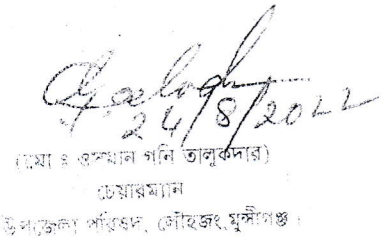 24/8/2022
(মোঃ ওসমান গনি তালুকদার)
চেয়ারম্যান
উপজেলা পরিষদ, লৌহজং, মুন্সীগঞ্জ।